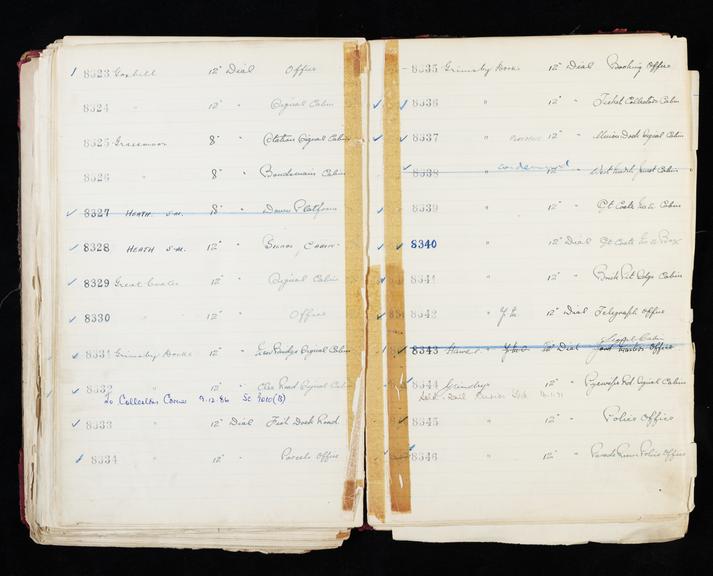 8323 Goxhill 12" Dial Office
8324 " 12" " Signal Cabin
8325 Grassmoor 8" " Station Signal Cabin
8326 " 8" " Bondsmain Cabin
8327 HEATH S.M. 8" " Down Platform
8328 HEATH S-M. 12" " SIGNAL CABIN.
8329 Great Coates 12" " Signal Cabin
8330 " 12" " Office
8331 Grimsby Docks 12" " Signal Cabin
8332 " 12" " Clee Road Signal Cabin
To Collectors Corner 9.12.86 SC 7010(B)
8333 " 12" Dial Fish Dock Road
8334 " 12" " Parcels Office
8335 Grimsby Docks 12" Dial Booking Office
8336 " 12" " Ticket Collectors Cabin
8337 " 12" " Union Dock Signal Cabin
8338 " condemned 12" " West Marsh Junct Cabin
8339 " 12" " Gt Coates No 1 Cabin
8340 " 12" Dial Gt Coates No 2 Box
8341 " 12" " Brick Pit Cabin
8342 " 12" Dial Telegraph Office
8343 " Dial Signal Cabin Office
8344 Grimsby 12" " Pyewipe Rd Signal Cabin
8345 " 12" " Police Office
8346 " 12" " Police Office